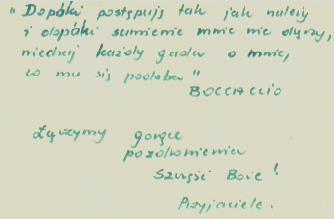 "Dopóki postępuję tak jak należy
i dopóki sumienie mnie nie dręczy,
niechaj każdy gada o mnie,
co mu się podoba"
BOCCACCIO
Łączymy gorące
pozdrowienia
Szczęść Boże!
Przyjaciele.